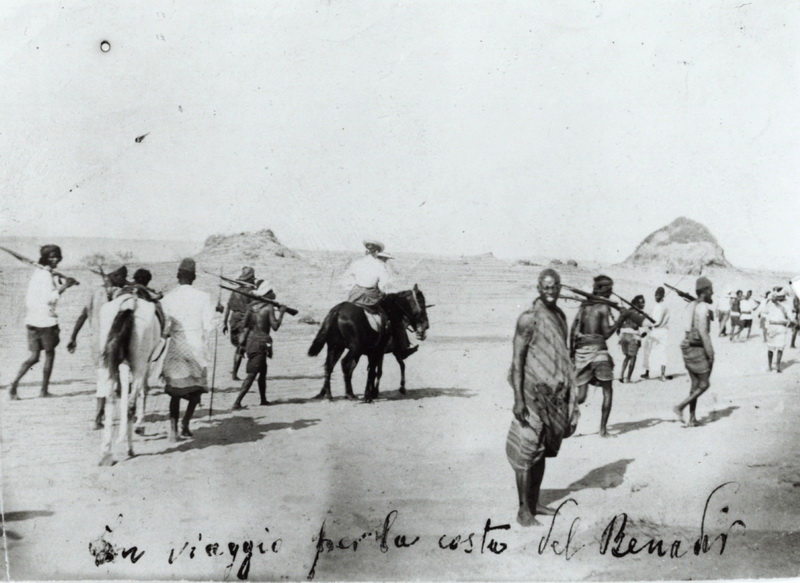 In viaggio per la costa del Benadir